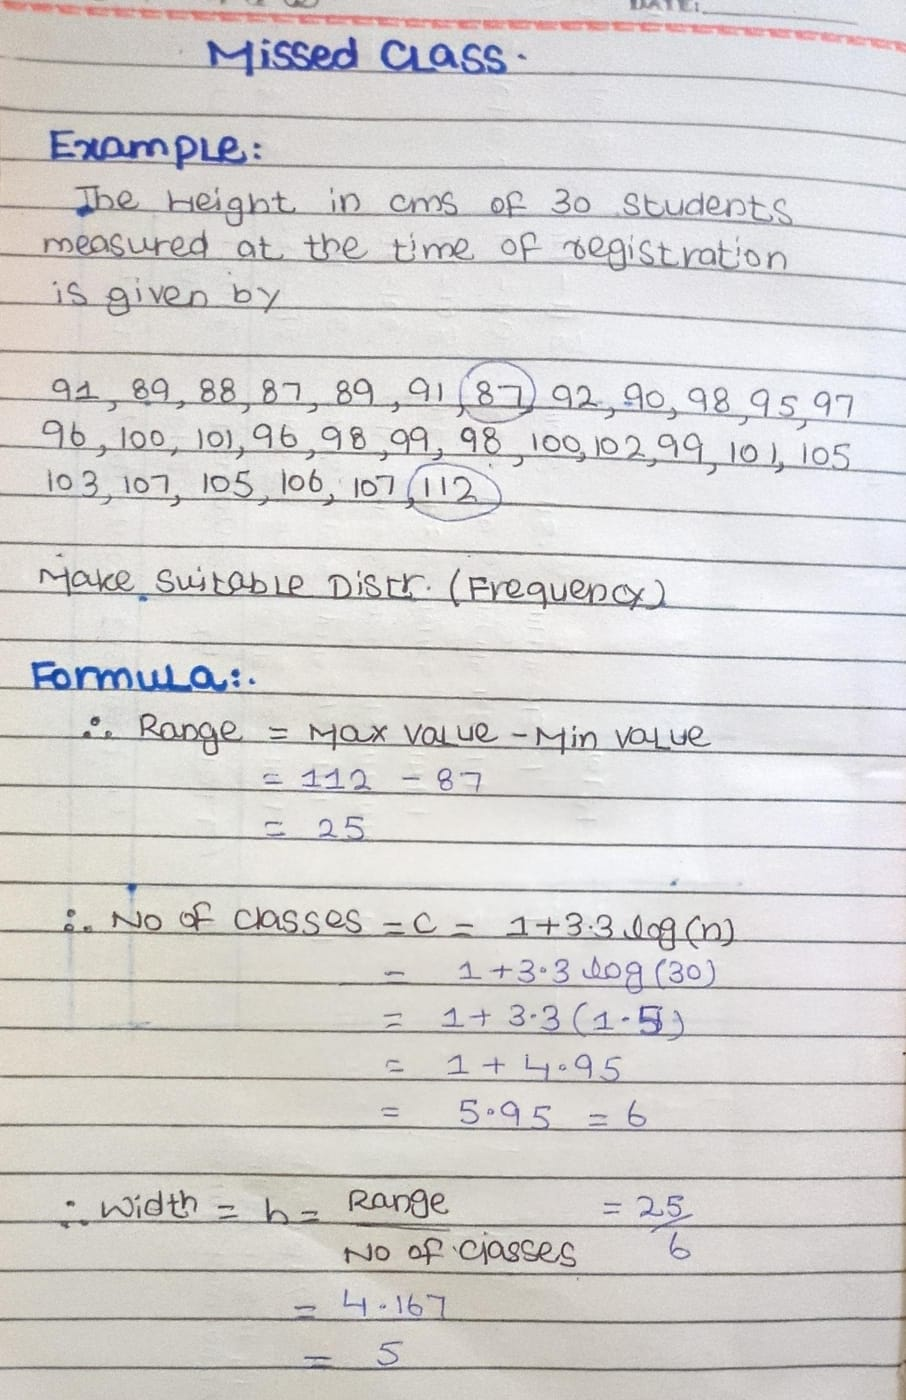 DATE:
Missed Class.
Example:
The Height in cms of 30 students
measured at the time of registration
is given by
91, 89, 88, 87, 89, 91, 87, 92, 90, 98, 95, 97
96, 100, 101, 96, 98, 99, 98, 100, 102, 99, 101, 105
103, 107, 105, 106, 107, 112
Make Suitable Distr. (Frequency)
Formula:.
∴ Range = Max value - Min value
= 112 - 87
= 25
∴ No of classes = C = 1+3.3 log(n)
= 1+3.3 log(30)
= 1+ 3.3 (1.5)
= 1 + 4.95
= 5.95 = 6
∴ Width = h = Range / No of classes = 25/6
= 4.167
= 5